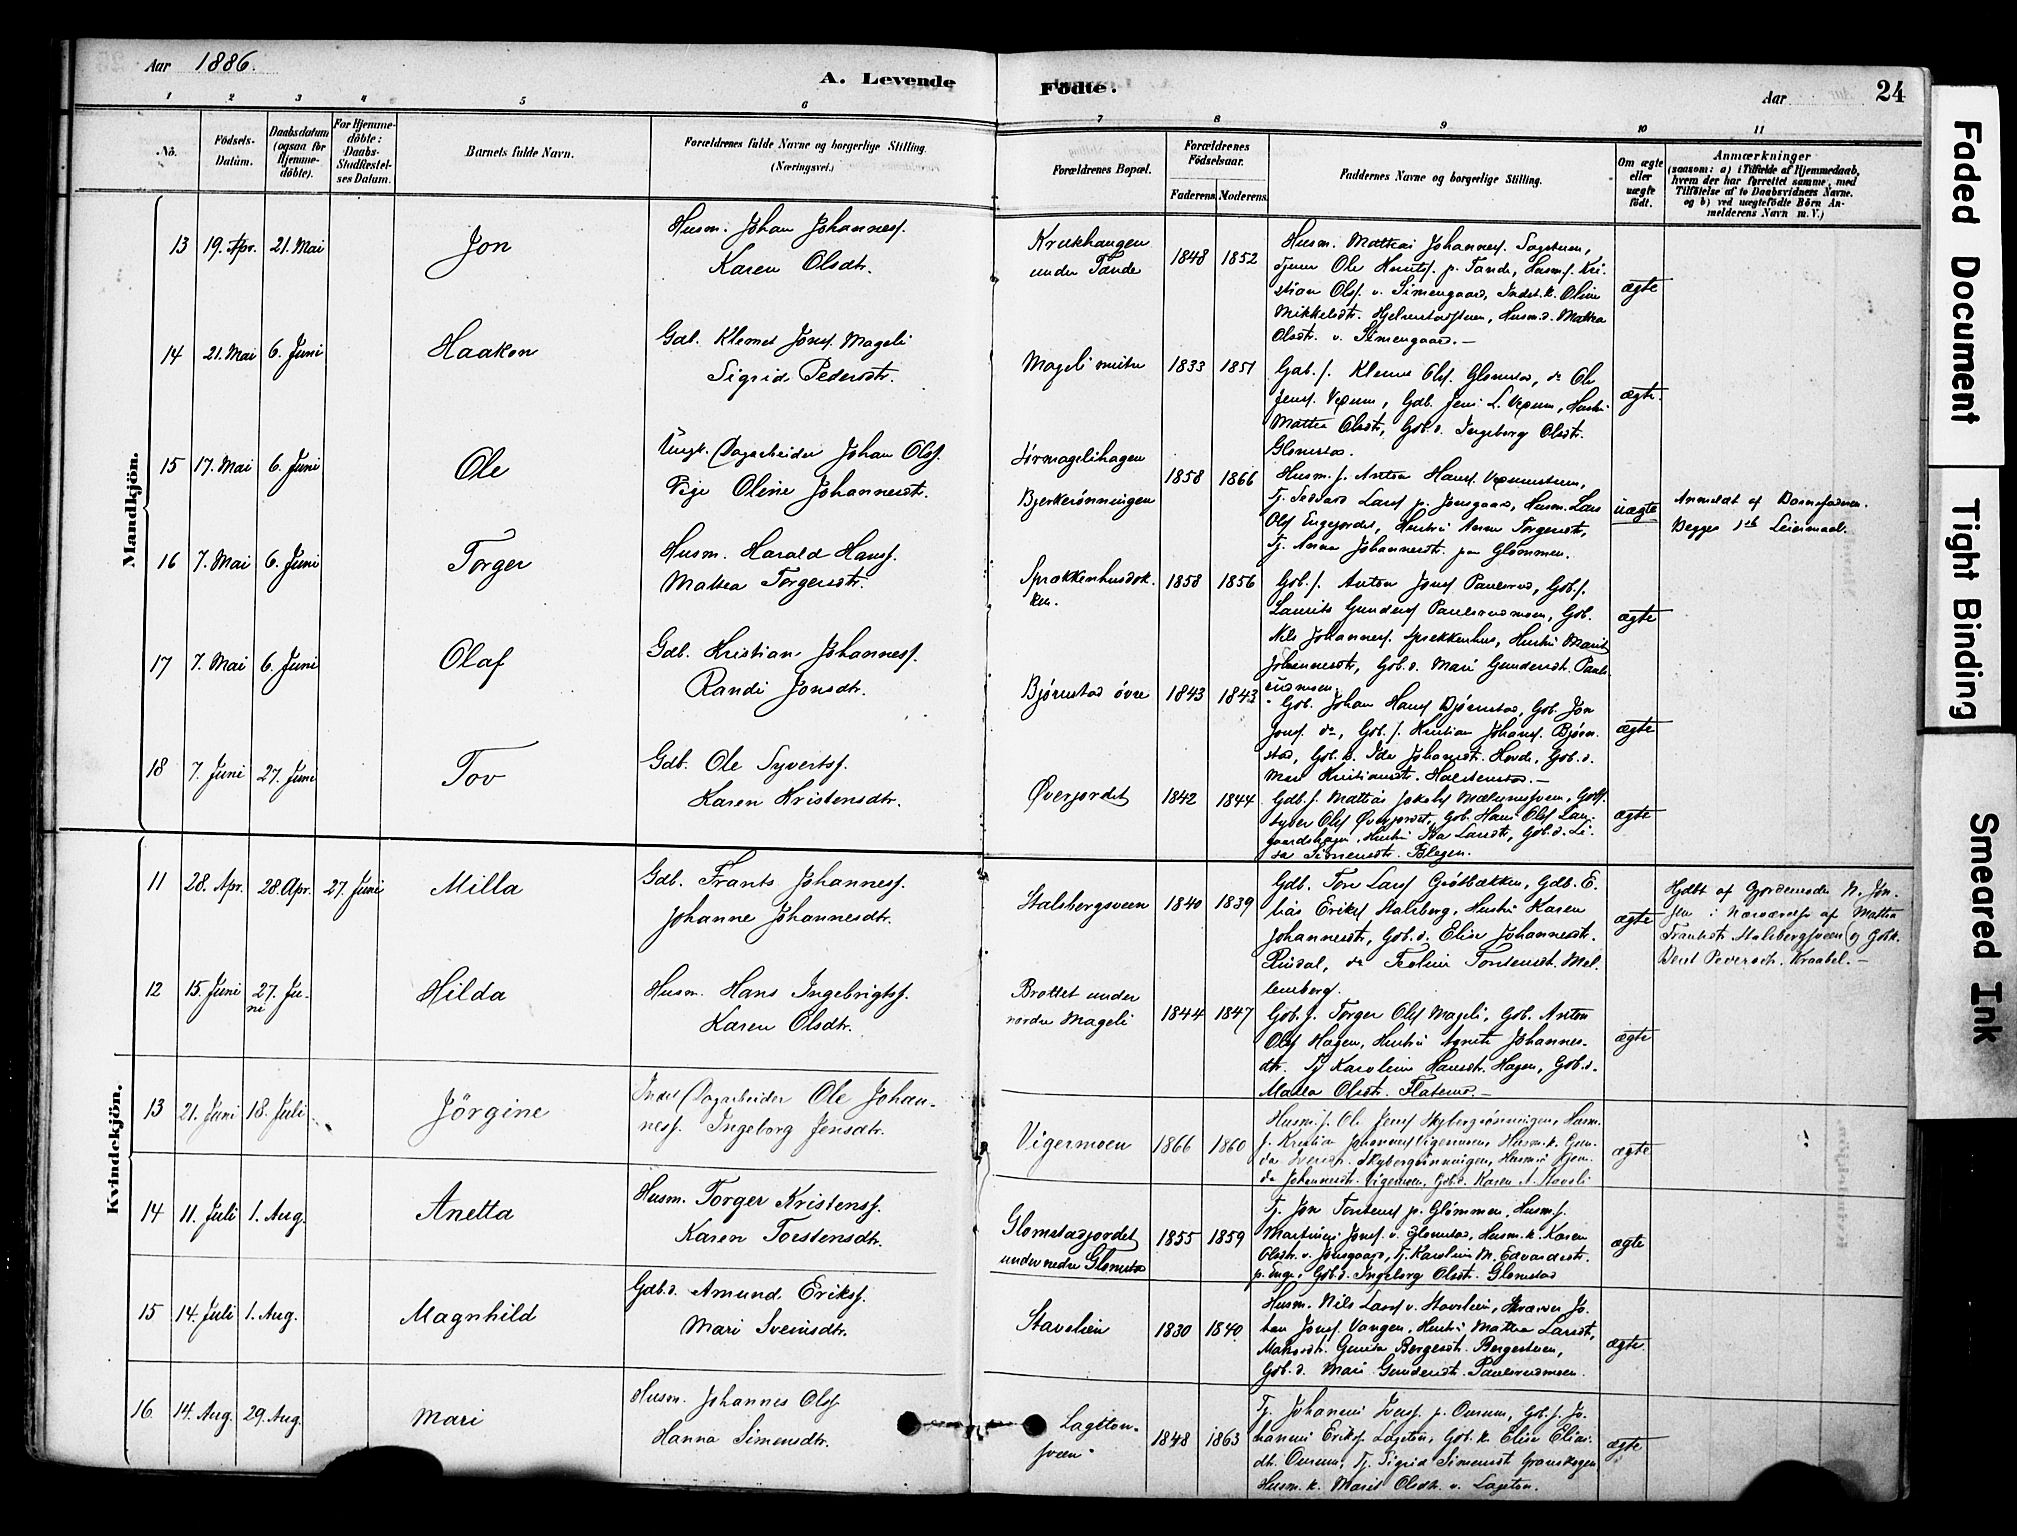 Aar 1886.
A. Levende
Fødte.
Aar
24
1 2 3 4 5 6 7 8 9 10 11
No.
Fødsels-Datum.
Daabsdatum (ogsaa for Hjemme-døbte).
For Hjemme-døbte: Daabs-Stadfæstel-ses Datum.
Barnets fulde Navn.
Forældrenes fulde Navne og borgerlige Stilling.
(Næringsvei.)
Forældrenes Bopæl.
Forældrenes Fødselsaar.
Faderens. Moderens.
Faddernes Navne og borgerlige Stilling.
Om ægte eller uægte født.
Anmærkninger
(saasom: a) i Tilfælde af Hjemmedaab,
hvem der har forrettet samme, med
Tilføielse af to Daabsvidners Navne.
og b) ved uægtefødte Børn An-
melderens Navn m. V.)
Mandkjön.
13 19. Apr. 21. Mai Jon
Husm. Johan Johannesf.
Karen Olsdtr.
Krukhaugen
under Tande
1848 1852
Husm. Mattias Johannesf. Sagstuen,
Tjener Ole p. Tande, Husmf. Kri-
stian Olsf. v. Simengaard, Inderst.k. Oline
Mikkelsdtr. Hjelmstadstuen, Husm.d. Mattea
Olsdtr. v. Simengaard.—
ægte
14 21. Mai 6. Juni Haakon
Gdb. Klemet Jonsf. Mageli
Sigrid Pedersdtr.
Mageli
1833 1851
Gdb.f. Klemet Olsf. Glomstad, do Ole
Jensf. Vexum, Gdb. Jens L. Vexum, Hustru
Mattea Olsdtr, Gdb.d. Ingeborg Olsdtr.
Glomstad.
ægte.
15 17. Mai 6. Juni Ole
Ungk. (Dagarbeider Johan Olsf.
Pige Oline Johannesdtr.
Sørmagelihagen
Bjerkerønningen
1858 1866
Husm.f. Anton Hansf. Vexumstuen,
Tj. Edvard Larsf. p. Jonsgaard, Husm. Lars
Olsf. Engejordet, Hustru Anne Torgersdtr,
Tj. Anna Johannesdtr. paa Glømmen.
uægte
Anmeldt af Barnefaderen.
Begges 1ste Leiermaal.
16 7. Mai 6. Juni Torger
Husm. Harald Hansf.
Mattea Torgersdtr.
Sprækkenhusbak-
ken.
1858 1856
Gdb.f. Anton Jonsf. Paulsrud, Gdb.f.
Laurits Gundersf. Paulsrudmoen, Gdb.
Nils Johannesf. Sprækkenhus, Hustru Marit
Johannesdtr, Gdb.d. Mari Gundersdtr. Pauls-
rudmoen.
ægte
17 7. Mai 6. Juni Olaf
Gdb. Kristian Johannesf.
Randi Jonsdtr.
Bjørnstad øvre
1843 1843
Gdb. Johan Hansf. Bjørnstad, Gdb. Jon
Jonsf. do, Gdb.f. Kristian Johansf. Bjørn-
stad, Gdb.k. Ida Johansdtr. Hovde, Gdb.d.
Mari Kristiansdtr. Halstenstad.—
ægte
18 7. Juni 27. Juni Tov
Gdb. Ole Syvertsf.
Karen Kristensdtr.
Øverjordet
1842 1844
Gdb.f. Mattias Jakobsf. Gdbf.
Syver Olsf. Øverjordet, Gdb. Hans Olsf. Lan-
gaardshagen, Hustru Ida Larsdtr, Gdb.d. Li-
sa Simensdtr. Blegen.
ægte
Kvindekjön.
11 28. Apr. 28. Apr. 27. Juni Milla
Gdb. Frants Johannesf.
Johanne Johannesdtr.
Stalsbergsveen
1840 1839
Gdb. Tore Larsf. Grøtbækken, Gdb. E-
lias Eriksf. Stalsberg, Hustru Karen
Johannesdtr, Gdb.d. Elise Johannesdtr.
Rindal, do Teoline Torstensdtr. Mel-
lemberg.
ægte
Hjdbt af Gjordemoder N. Jon-
sen i Nærværelse af Mattea
Frantsdtr. Stalsbergsveen og Gdbk.
Berit Peversdtr. Kraabøl.—
12 15. Juni 27. Ju-
ni Hilda
Husm. Hans Ingebrigtsf.
Karen Olsdtr.
Brottet under
nordre Mageli
1844 1847
Gdb.f. Torger Olsf. Mageli, Gdb. Anton
Olsf. Hagen, Hustru Agnete Johannes-
dtr. Tj. Karoline Hansdtr. Hagen, Gdb.d.
Mattea Olsdtr. Flaterud.—
ægte
13 21. Juni 18. Juli Jörgine
Inderst (Dagarbeider Ole Johan-
nesf. Ingeborg Jensdtr.
Vigermoen
1866 1860
Husm.f. Ole Jensf. Skybergrønningen, Husm.
f. Kristian Johannesf. Vigermoen, Husm.k. Gun-
da Iversdtr. Skybergrønningen,
Johannesdtr. Vigermoen, Gdb.d. Karen A. Stavsli
ægte
14 11. Juli 1. Aug. Anetta
Husm. Torger Kristensf.
Karen Torstensdtr.
Glomstadjordet
under nedre Glomstad
1855 1859
Tj. Jon Torstensf. p. Glømmen, Husm.f.
Martinus Jonsf. v. Glomstad, Husm.k. Karen
Olsdtr. v. Jonsgaard, Tj. Karoline M. Edvardsdtr.
p. Enge, Gdb.d. Ingeborg Olsdtr. Glomstad
ægte
15 14. Juli 1. Aug. Magnhild
Gdb.s. Amund Eriksf.
Mari Svensdtr.
Stavslien
1830 1840.
Husm. Nils Larsf. v. Stavslien, Jo-
han Jonsf. Vangen, Hustru Mattea Larsdtr,
Bergersdtr. Bergestuen,
Gdb.d. Mari Gundersdtr. Paulsrudmoen.
ægte.
16 14. Aug. 29. Aug. Mari
Husm. Johannes Olsf.
Hanna Simensdtr.
Lageton-
sveen
1848 1863
Tj. Johannes Iversf. p. Onsum, Gdb.f. Jo-
hannes Eriksf. Lageton, Gdb.k. Elise Elias-
dtr. Onsum, Tj. Sigrid Simensdtr. Granskogen
Husm.k. Marit Olsdtr. v. Lageton.
ægte
Faded Document
Tight Binding
Smeared Ink